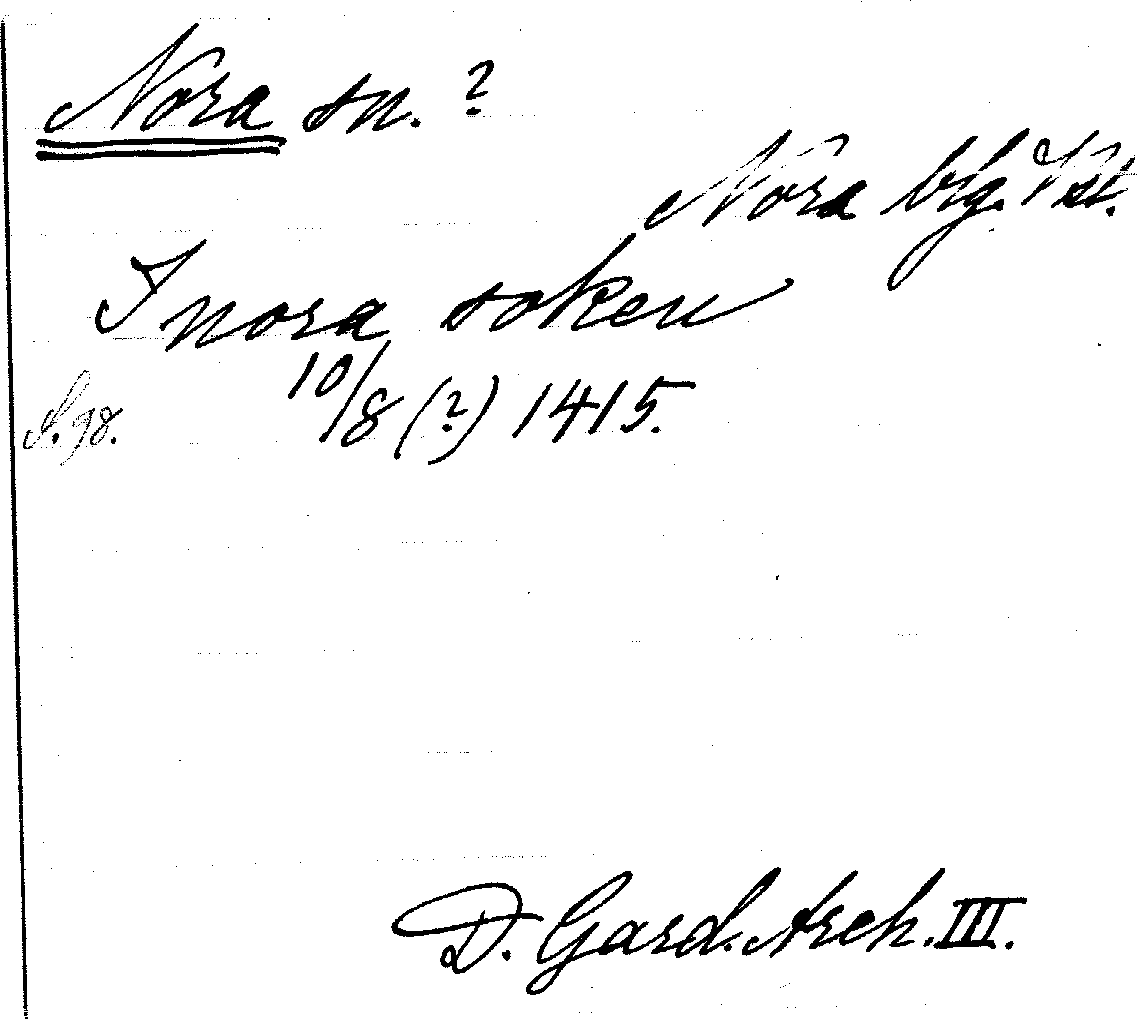 Nora sn.?
Nora brg. Vst.
I nora soken
S. 98. 10/8 (?) 1415.
D. Gard. Arch. III.